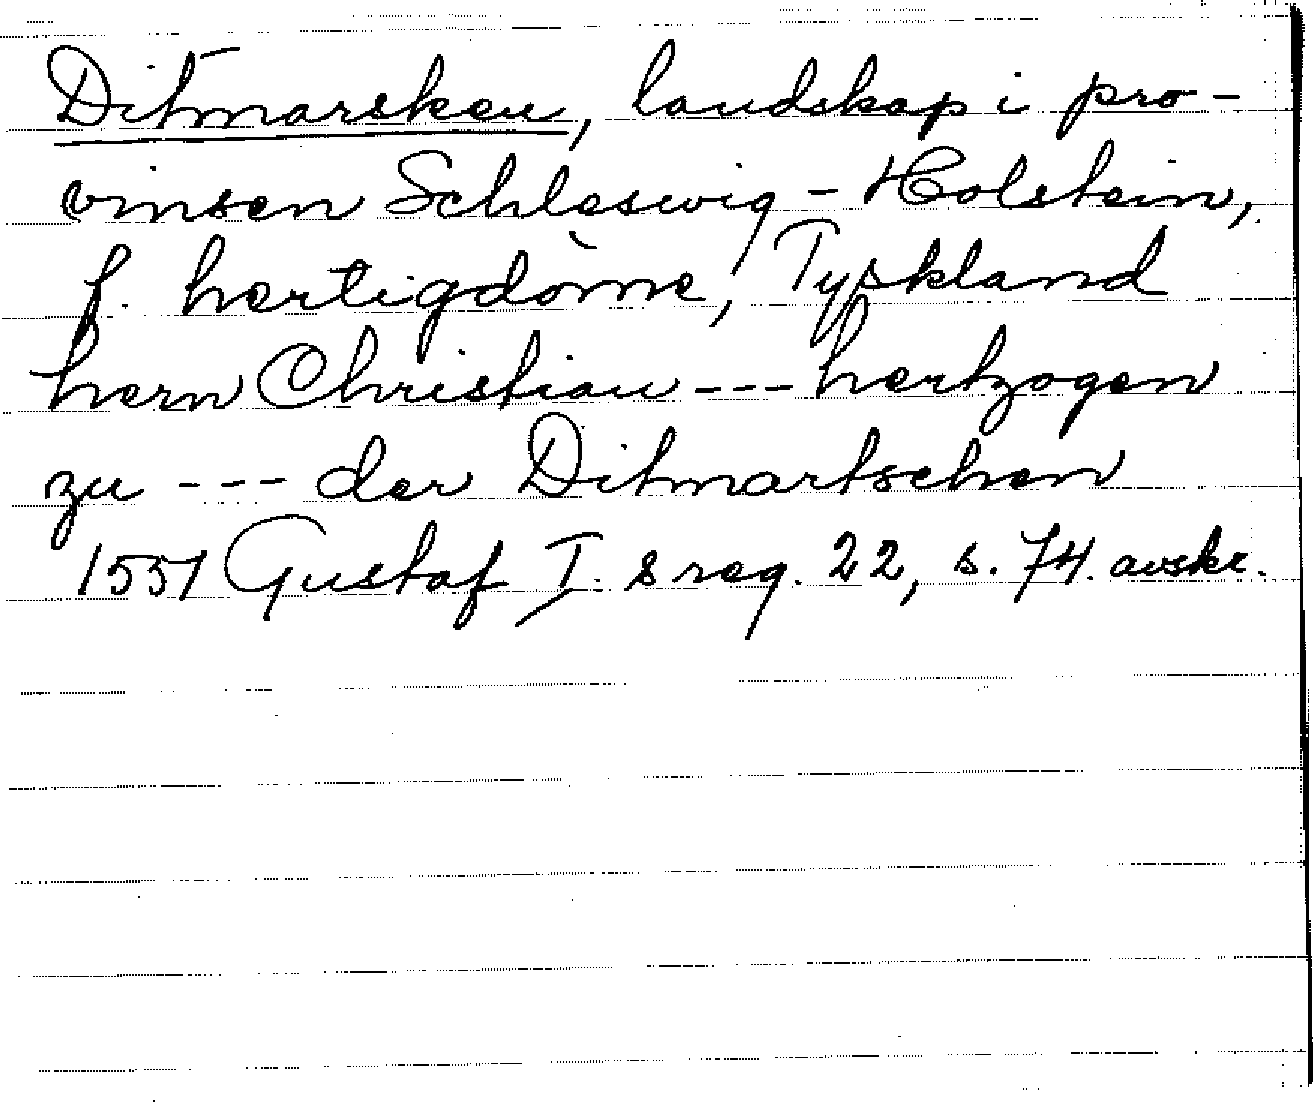 Ditmarsken, landskap i pro-
vinsen Schleswig-Holstein,
f. hertigdöme, Tyskland
hern Christian --- hertzogen
zu --- der Ditmartschen
1551 Gustaf I.s reg. 22, s. 74. avskr.